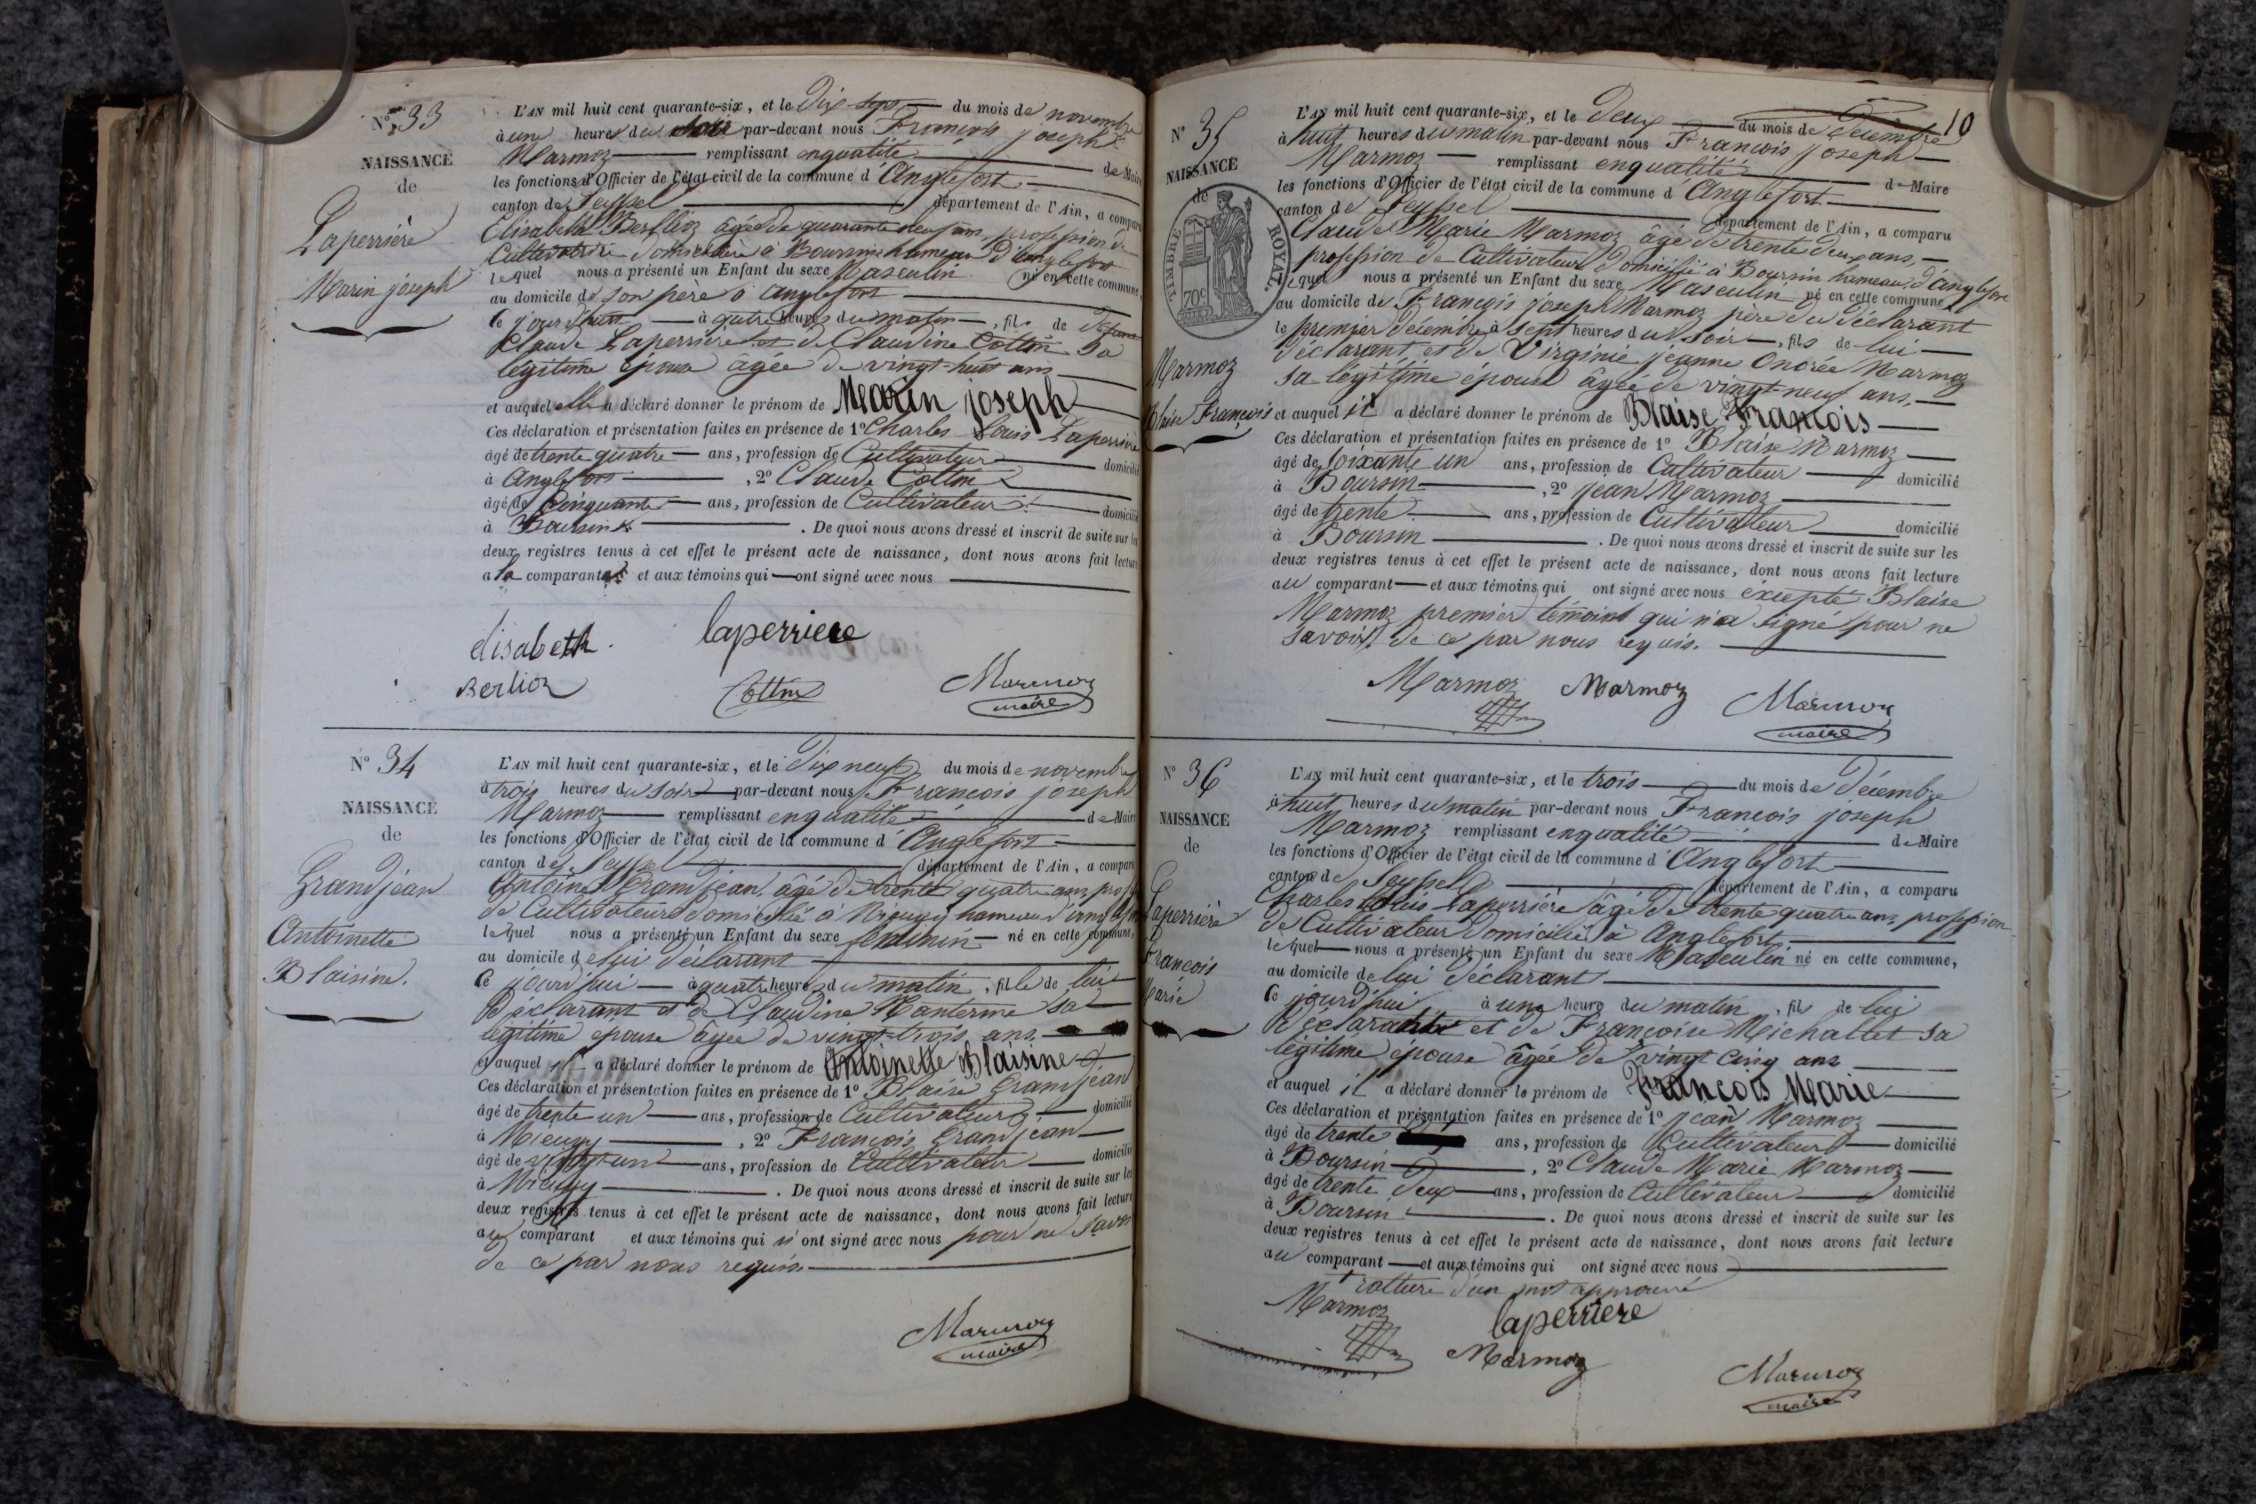 N° 33
NAISSANCE
de
Laperrière
Marin joseph
L'AN mil huit cent quarante-six, et le Dix-sept du mois de novembre
à une heures du soir par-devant nous François joseph
Marmoz remplissant enqualité de Maire
les fonctions d'Officier de l'état civil de la commune d'Anglefort
canton de Seyssel département de l'Ain, a comparu
Elisabeth Berlioz âgée de quarante neuf ans, profession de
Cultivatrice domiciliée à Boursin hameau d'Anglefort
lequel nous a présenté un Enfant du sexe Masculin né en cette commune,
au domicile de son père à Anglefort
le jourd'hui à quatre heures du matin, fils de
Claude Laperrière et de Claudine Cottin sa
légitime épouse âgée de vingt-huit ans
et auquel elle a déclaré donner le prénom de Marin joseph
Ces déclaration et présentation faites en présence de 1° Charles Louis Laperrière
âgé de trente quatre ans, profession de Cultivateur domicilié
à Anglefort, 2° Claude Cottin
âgé de Cinquante ans, profession de Cultivateur domicilié
à Boursin. De quoi nous avons dressé et inscrit de suite sur les
deux registres tenus à cet effet le présent acte de naissance, dont nous avons fait lecture
a la comparante et aux témoins qui ont signé avec nous
elisabeth laperriere
Berlioz Cottin Marmoz
maire
N° 34
NAISSANCE
de
Grandjean
Antoinette
Blaisine.
L'AN mil huit cent quarante-six, et le Dix neuf du mois de novembre
à trois heures du soir par-devant nous François joseph
Marmoz remplissant enqualité de Maire
les fonctions d'Officier de l'état civil de la commune d'Anglefort
canton de Seyssel département de l'Ain, a comparu
Antoine Grandjean âgé de trente quatre ans, prof
de Cultivateur domicilié à Mieugy hameau d'Anglefort
lequel nous a présenté un Enfant du sexe féminin né en cette commune,
au domicile de lui déclarant
le jourd'hui à quatre heures du matin, fille de lui
déclarant et de Claudine Manterme sa
légitime épouse âgée de vingt-trois ans
et auquel il a déclaré donner le prénom de Antoinette Blaisine
Ces déclaration et présentation faites en présence de 1° Blaise Grandjean
âgé de trente un ans, profession de Cultivateur domicilié
à Mieugy, 2° François Grandjean
âgé de vingt un ans, profession de Cultivateur domicilié
à Mieugy. De quoi nous avons dressé et inscrit de suite sur les
deux registres tenus à cet effet le présent acte de naissance, dont nous avons fait lecture
au comparant et aux témoins qui n'ont signé avec nous pour ne savoir
de ce par nous requis
Marmoz
maire
10
N° 35
NAISSANCE
de
TIMBRE ROYAL
70c
Marmoz
Blaise François
L'AN mil huit cent quarante-six, et le Deux du mois de Décembre
à huit heures du matin par-devant nous François joseph
Marmoz remplissant enqualité de Maire
les fonctions d'Officier de l'état civil de la commune d'Anglefort
canton de Seyssel département de l'Ain, a comparu
Claude Marie Marmoz âgé de trente deux ans,
profession de Cultivateur domicilié à Boursin hameau d'Anglefort
lequel nous a présenté un Enfant du sexe Masculin né en cette commune,
au domicile de François joseph Marmoz père du déclarant
le premier décembre à sept heures du soir, fils de lui
déclarant et de Virginie jeanne Onorée Marmoz
sa légitime épouse âgée de vingt-neuf ans.
et auquel il a déclaré donner le prénom de Blaise François
Ces déclaration et présentation faites en présence de 1° Blaise Marmoz
âgé de soixante un ans, profession de Cultivateur domicilié
à Boursin, 2° jean Marmoz
âgé de trente ans, profession de Cultivateur domicilié
à Boursin. De quoi nous avons dressé et inscrit de suite sur les
deux registres tenus à cet effet le présent acte de naissance, dont nous avons fait lecture
au comparant et aux témoins qui ont signé avec nous excepté Blaise
Marmoz premier témoint qui n'a signé pour ne
savoir de ce par nous requis.
Marmoz Marmoz Marmoz
maire
N° 36
NAISSANCE
de
Laperrière
François
Marie
L'AN mil huit cent quarante-six, et le trois du mois de Décembre
à huit heures du matin par-devant nous François joseph
Marmoz remplissant enqualité de Maire
les fonctions d'Officier de l'état civil de la commune d'Anglefort
canton de Seyssel département de l'Ain, a comparu
Charles Louis Laperrière âgé de trente quatre ans, profession
de Cultivateur domicilié à Anglefort
lequel nous a présenté un Enfant du sexe Masculin né en cette commune,
au domicile de lui déclarant
le jourd'hui à une heure du matin, fils de lui
déclarant et de Françoise Michallet sa
légitime épouse âgée de vingt cinq ans
et auquel il a déclaré donner le prénom de François Marie
Ces déclaration et présentation faites en présence de 1° jean Marmoz
âgé de trente ans, profession de Cultivateur domicilié
à Boursin, 2° Claude Marie Marmoz
âgé de trente deux ans, profession de Cultivateur domicilié
à Boursin. De quoi nous avons dressé et inscrit de suite sur les
deux registres tenus à cet effet le présent acte de naissance, dont nous avons fait lecture
au comparant et aux témoins qui ont signé avec nous
rature d'un mot approuvé
Marmoz laperriere
Marmoz Marmoz
maire